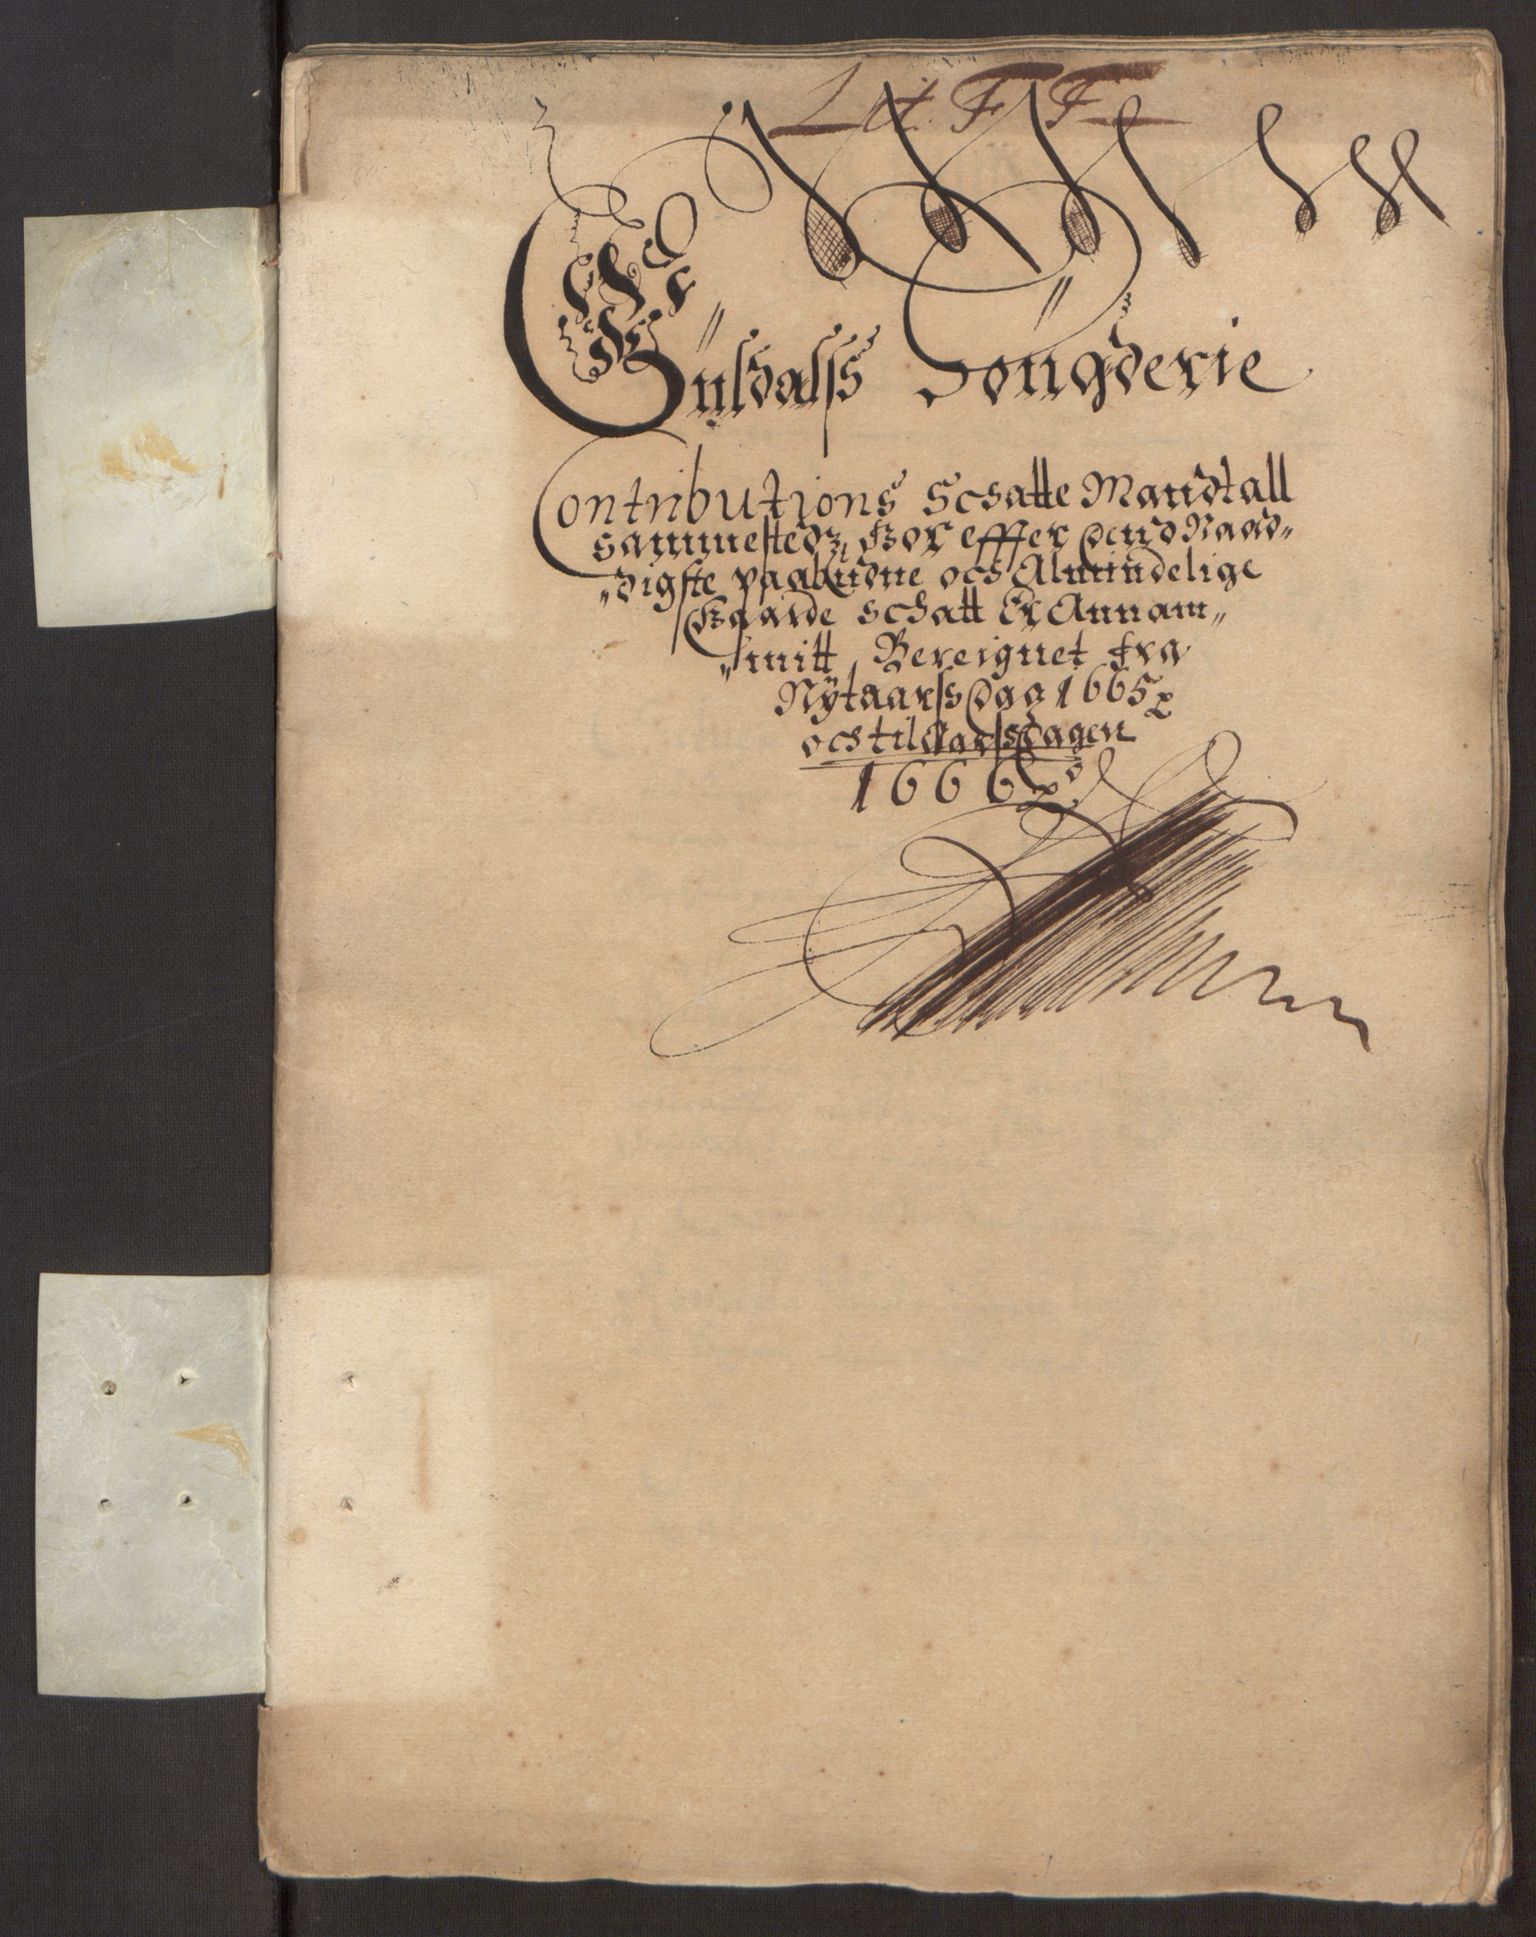 Lit. F F
Guldalss Fougderie
Contributions Schatte Mandtall
sammestedz, Hor effter dend Naad-
„digste paabudne och Almindelige
Gaarde schatt Er Annam„
„mitt, Bereignet fra
Nÿtaarss Dag 1665
och til Aarssdagen
1666